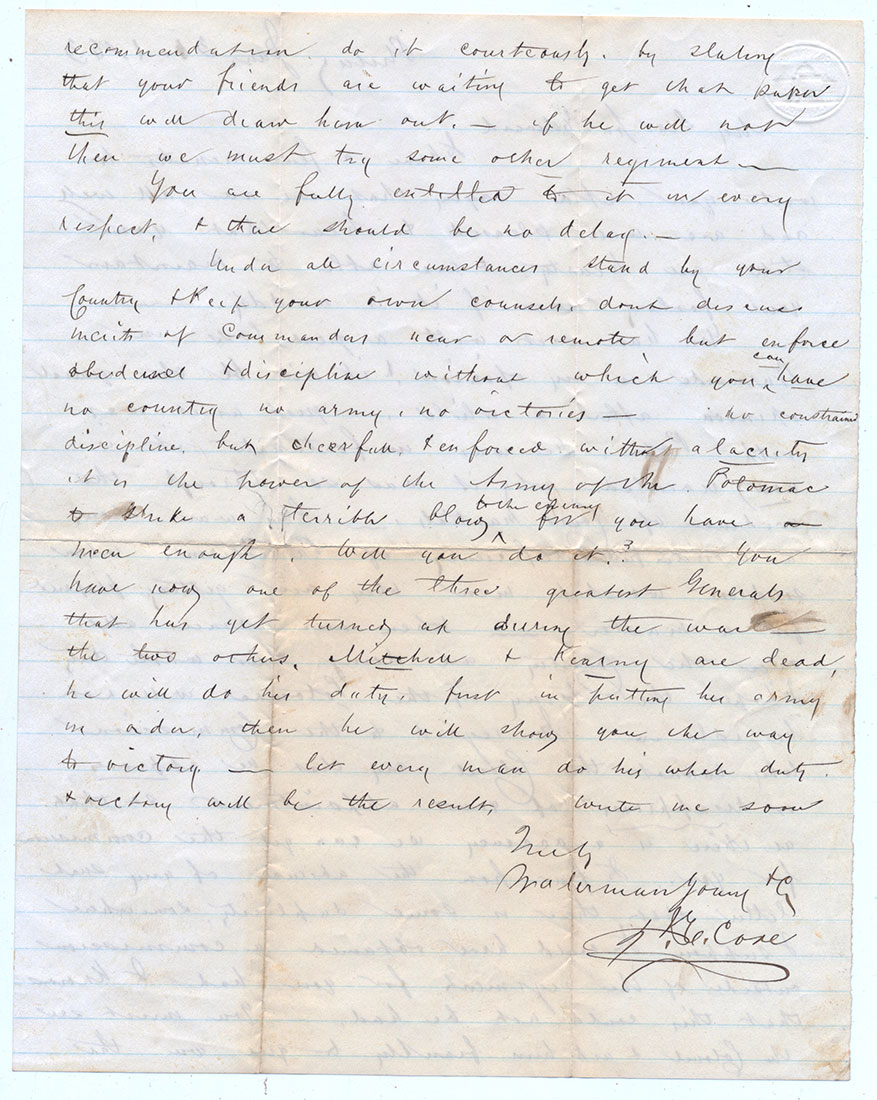 recommendation do it courteously. by stating
that your friends are waiting to get that paper
this will draw him out. — if he will not
then we must try some other regiment —
You are fully entitled to it in every
respect, & there should be no delay. —
Under all circumstances stand by your
Country & Keep your own counsels. dont discuss
merits of Commanders near or remote but enforce
obedience & discipline without which you can have
no country no army, no victories — no constrained
discipline. but cheerfull, & enforced with alacrity
it is the power of the Army of the Potomac
to strike a terrible blow to the enemy for you have
men enough. Will you do it.? You
have now one of the three greatest Generals
that has yet turned up during the war —
the two others, Mitchell & Kearny are dead,
he will do his duty. first in putting his army
in order, then he will show you the way
to victory — let every man do his whole duty.
& victory will be the result, write me soon
Truly
Waterman Young & Co
Cone